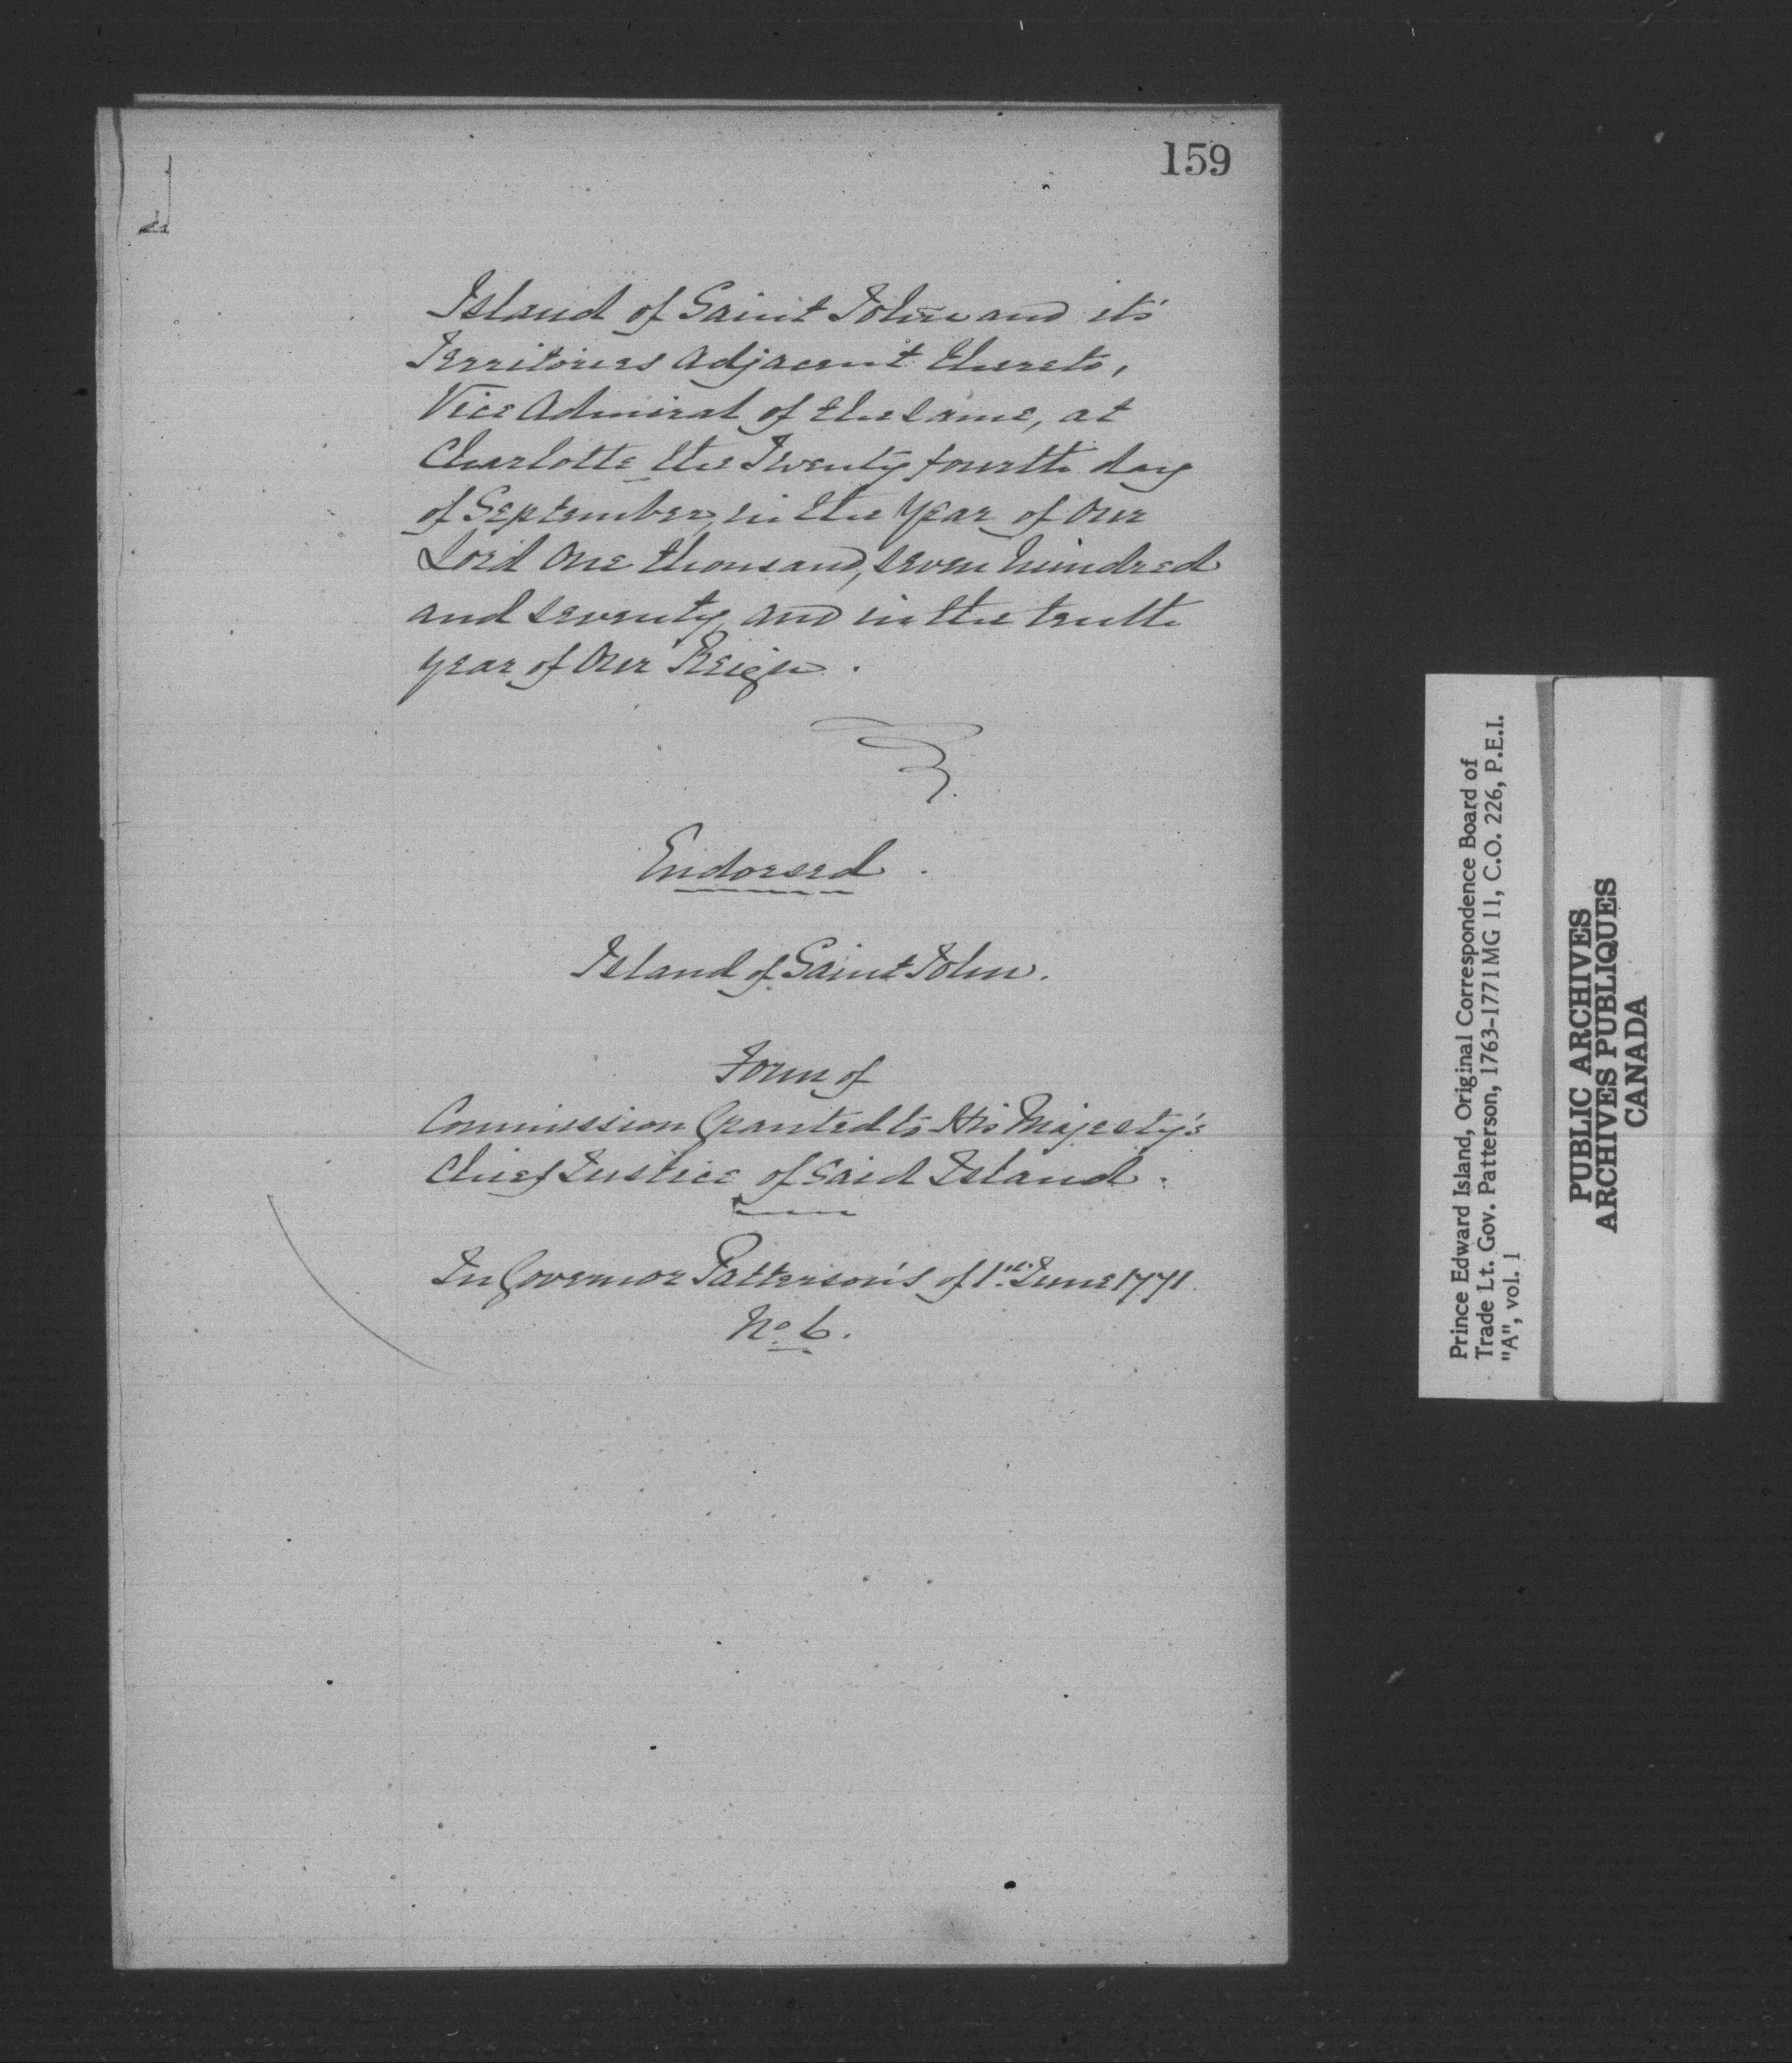 159
Island of Saint John and it's
Territories adjacent thereto,
Vice Admiral of the same, at
Charlotte the Twenty fourth day
of September, in the Year of our
Lord One thousand, seven hundred
and seventy, and in the tenth
year of Our Reign.
Endorsed.
Island of Saint John.
Form of
Commission Granted to His Majesty's
Chief Justice of said Island.
In Governor Patterson's of 1st June 1771.
No 6.
Prince Edward Island, Original Correspondence Board of
Trade Lt. Gov. Patterson, 1763-1771 MG 11, C.O. 226, P.E.I.
"A", vol. 1
PUBLIC ARCHIVES
ARCHIVES PUBLIQUES
CANADA